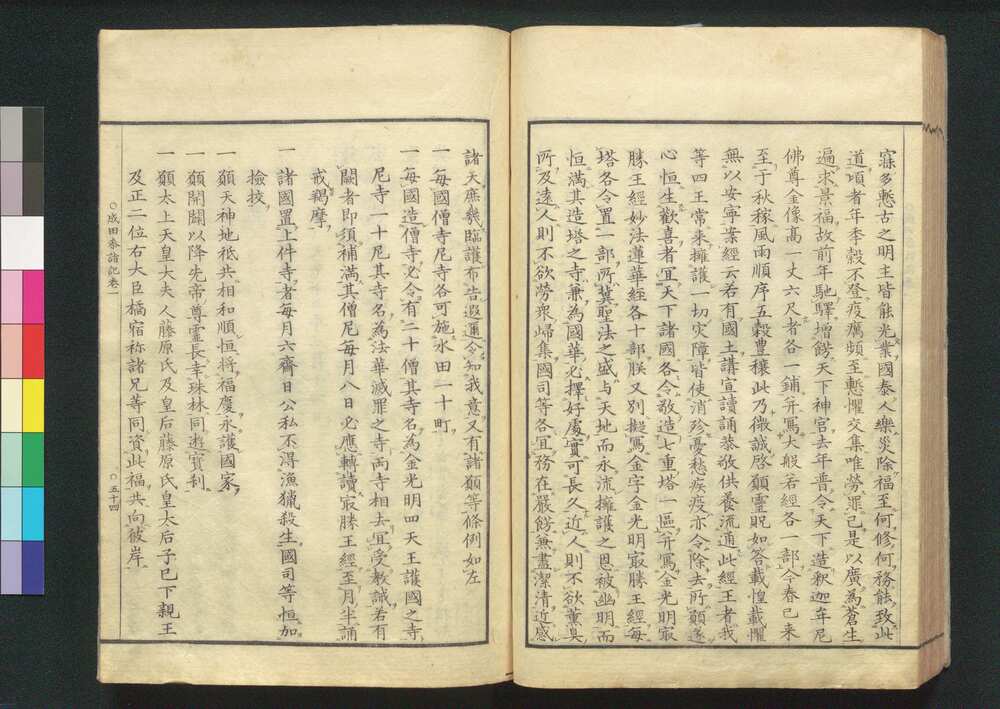 寐多慙古之明主皆能光業國泰人樂災除福至何修何務能致此
道頃者年季穀不登疫癘頻至慙懼交集唯勞罪己是以廣為蒼生
遍求景福故前年馳驛增餝天下神宮去年普令天下造釈迦牟尼
佛尊金像高一丈六尺者各一鋪并寫大般若經各一部今春已来
至于秋稼風雨順序五穀豊穰此乃徴誠啓願靈貺如答載惶載懼
無以安寧案經云若有國土講宣讀誦恭敬供養流通此經王者我
等四王常来擁護一切灾障皆使消殄憂愁疾疫亦令除去所願遂
心恒生歡喜者宜天下諸國各令敬造七重塔一區并寫金光明㝡
勝王經妙法蓮華經各十部朕又別擬寫金字金光明㝡勝王經每
塔各令置一部所冀聖法之盛与天地而永流擁護之恩被幽明而
恒満其造塔之寺兼為國華必擇好處實可長久近人則不欲薫臭
所及遠人則不欲勞衆歸集國司等各宜務在嚴餝無盡潔清近感
諸天庶幾臨護布告遐邇令知我意又有諸願等條例如左
一每國僧寺尼寺各可施水田一十町
一每國造僧寺必令有二十僧其寺名為金光明四天王護國之寺
尼寺一十尼其寺名為法華滅罪之寺両寺相去宜受教誡若有
闕者即須補満其僧尼每月八日必應轉讀㝡勝王經至月半誦
戒羯摩
一諸國置上件寺者每月六齋日公私不得漁獵殺生國司等恒加
撿挍
一願天神地祗共相和順恒将福慶永護國家
一願開闢以降先帝尊靈長幸珠林同遊寳刹
一願太上天皇大夫人藤原氏及皇后藤原氏皇太后子已下親王
及正二位右大臣橘宿祢諸兄等同資此福共向彼岸
○成田参詣記巻一
○五十四